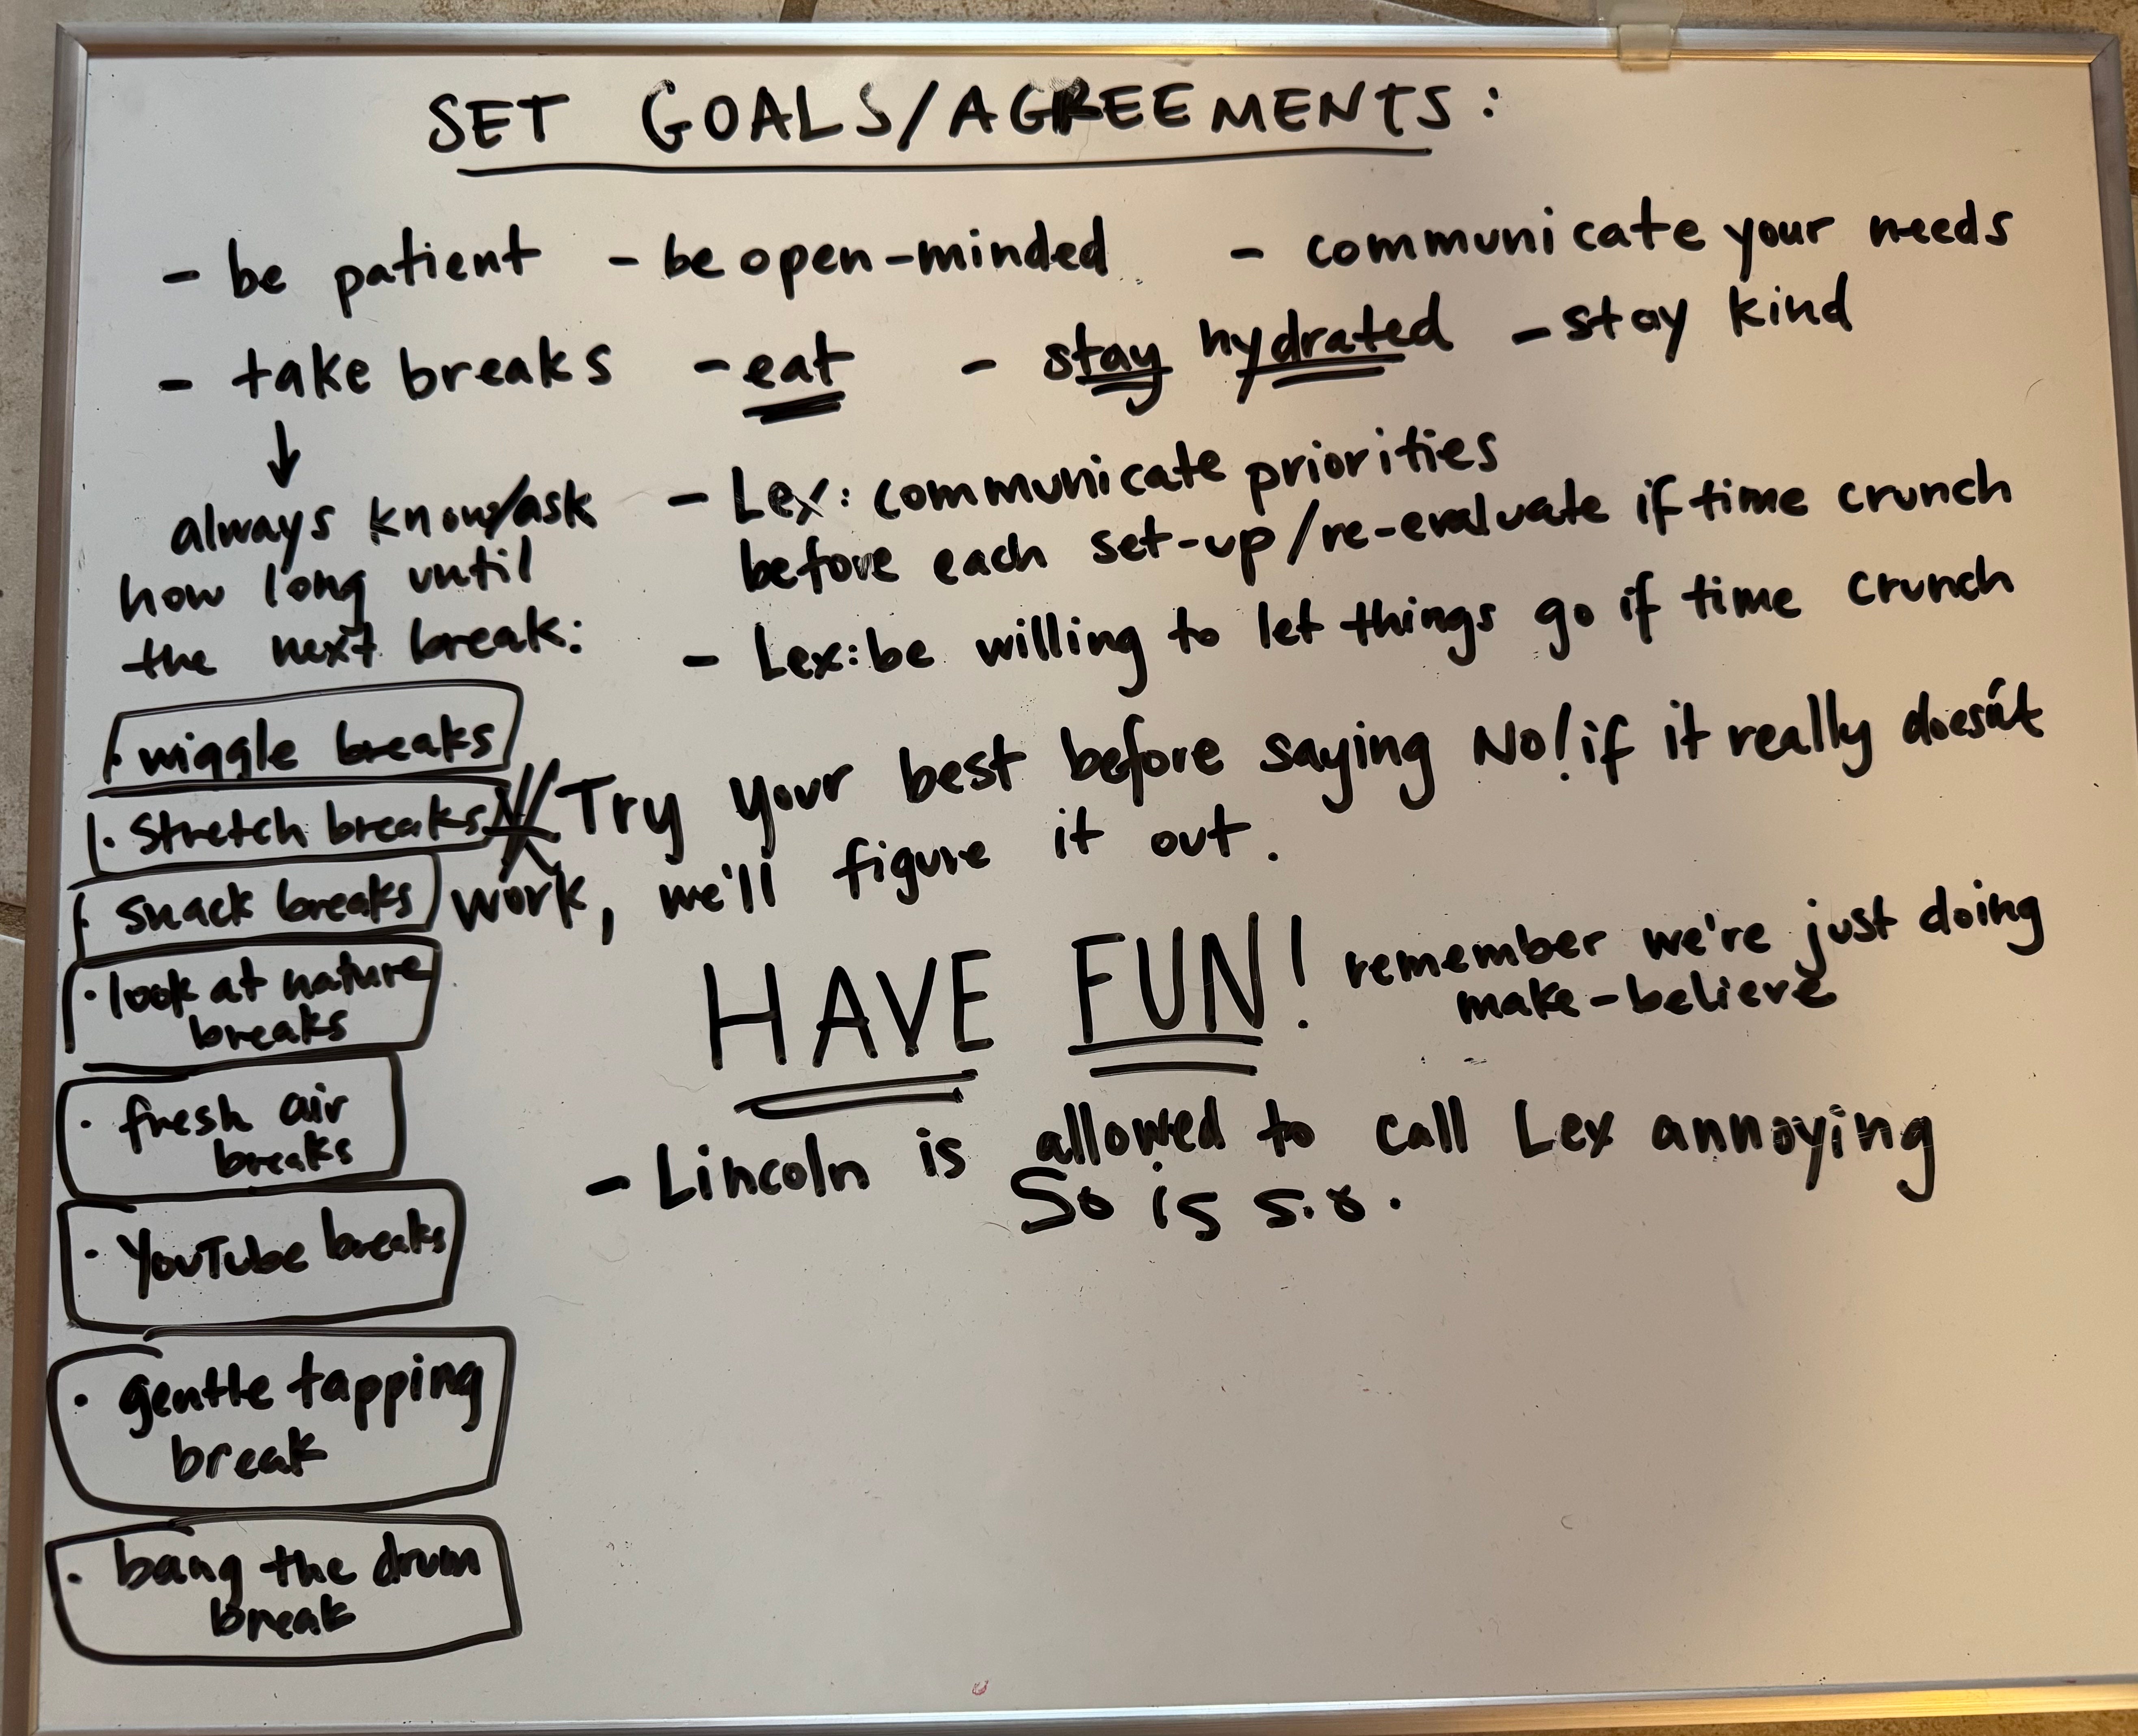 SET GOALS/AGREEMENTS:
- be patient - be open-minded - communicate your needs
- take breaks - eat - stay hydrated - stay kind
↓
always know/ask
how long until
the next break:
· wiggle breaks
· stretch breaks
· snack breaks
· look at nature
breaks
· fresh air
breaks
· YouTube breaks
· gentle tapping
break
· bang the drum
break
- Lex: communicate priorities
before each set-up/re-evaluate if time crunch
- Lex: be willing to let things go if time crunch
Try your best before saying No! if it really doesn't
work, we'll figure it out.
HAVE FUN! remember we're just doing
make-believe
- Lincoln is allowed to call Lex annoying
So is